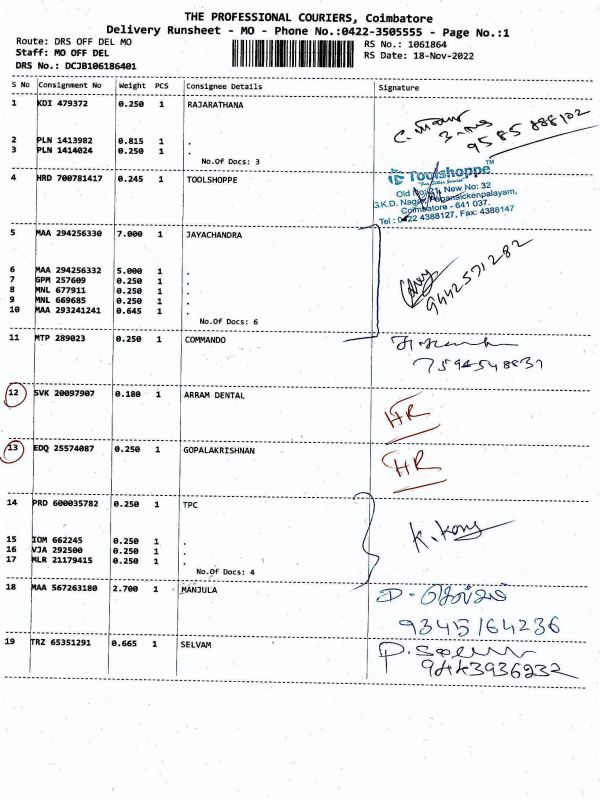 THE PROFESSIONAL COURIERS, Coimbatore
Delivery Runsheet - MO - Phone No.:0422-3505555 - Page No.:1
Route: DRS OFF DEL MO
RS No.: 1061864
Staff: MO OFF DEL
RS Date: 18-Nov-2022
DRS No.: DCJB106186401
S No Consignment No Weight PCS Consignee Details Signature
1 KDI 479372 0.250 1 RAJARATHANA
9585888102
2 PLN 1413982 0.815 1 .
3 PLN 1414024 0.250 1 .
No.Of Docs: 3
4 HRD 700781417 0.245 1 TOOLSHOPPE
Toolshoppe TM
Old No: 11, New No: 32
S.K.D. Nagar, Papanaickenpalayam,
Coimbatore - 641 037.
Tel : 0422 4388127, Fax: 4388147
5 MAA 294256330 7.000 1 JAYACHANDRA
6 MAA 294256332 5.000 1 .
7 GPM 257609 0.250 1 .
8 MNL 677911 0.250 1 .
9 MNL 669685 0.250 1 .
10 MAA 293241241 0.645 1 .
9442571282
No.Of Docs: 6
11 MTP 289023 0.250 1 COMMANDO
12 SVK 20097907 0.180 1 ARRAM DENTAL
HR
13 EDQ 25574087 0.250 1 GOPALAKRISHNAN
HR
14 PRD 600035782 0.250 1 TPC
15 IOM 662245 0.250 1 .
16 VJA 292500 0.250 1 .
17 MLR 21179415 0.250 1 .
No.Of Docs: 4
18 MAA 567263180 2.700 1 MANJULA
9345164236
19 TRZ 65351291 0.665 1 SELVAM
9443936232